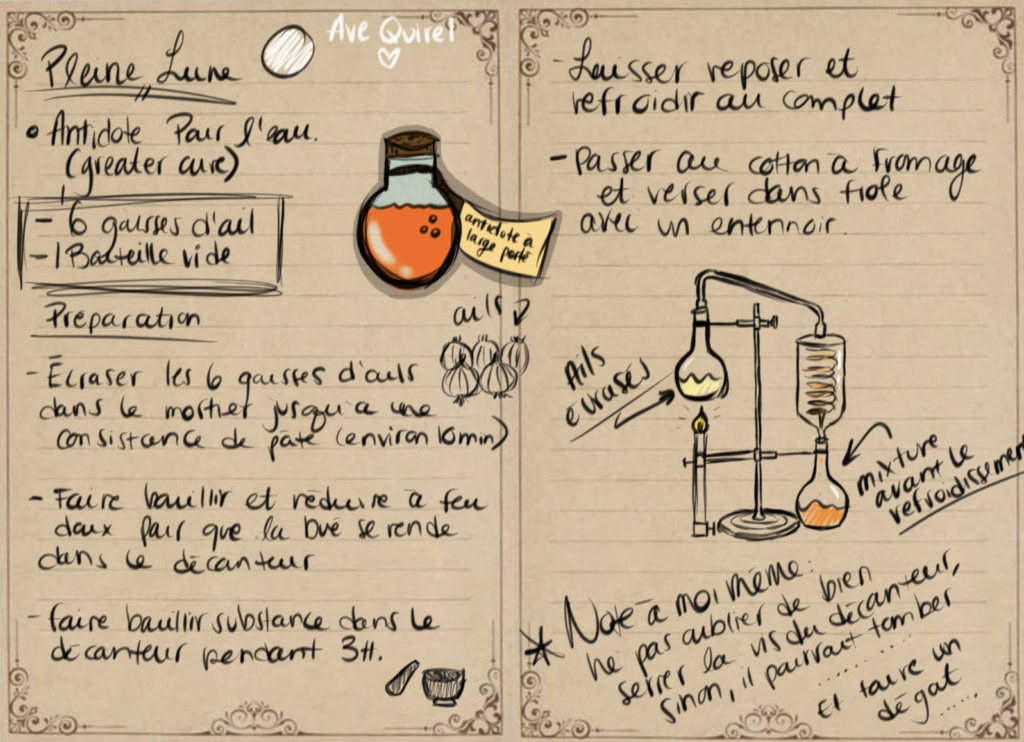 Ave Quirel
Pleine Lune
• Antidote Pour l'eau.
(greater cure)
- 6 gausses d'ail
- 1 Bouteille vide
antidote à
large porté
Préparation
ails
- Écraser les 6 gausses d'ails
dans le mortier jusqu'a une
consistance de pâte (environ 10min)
- Faire bouillir et réduire à feu
doux pour que la bué se rende
dans le décanteur
- faire bouillir substance dans le
décanteur pendant 3H.
- Laisser reposer et
refroidir au complet
- Passer au cotton à fromage
et verser dans fiole
avec un entennoir.
Ails
écrasés
mixture
avant le
refroidissement
* Note à moi même:
ne pas oublier de bien
serrer la vis du décanteur,
sinon, il pourrait tomber
.......
Et faire un
dégat.....